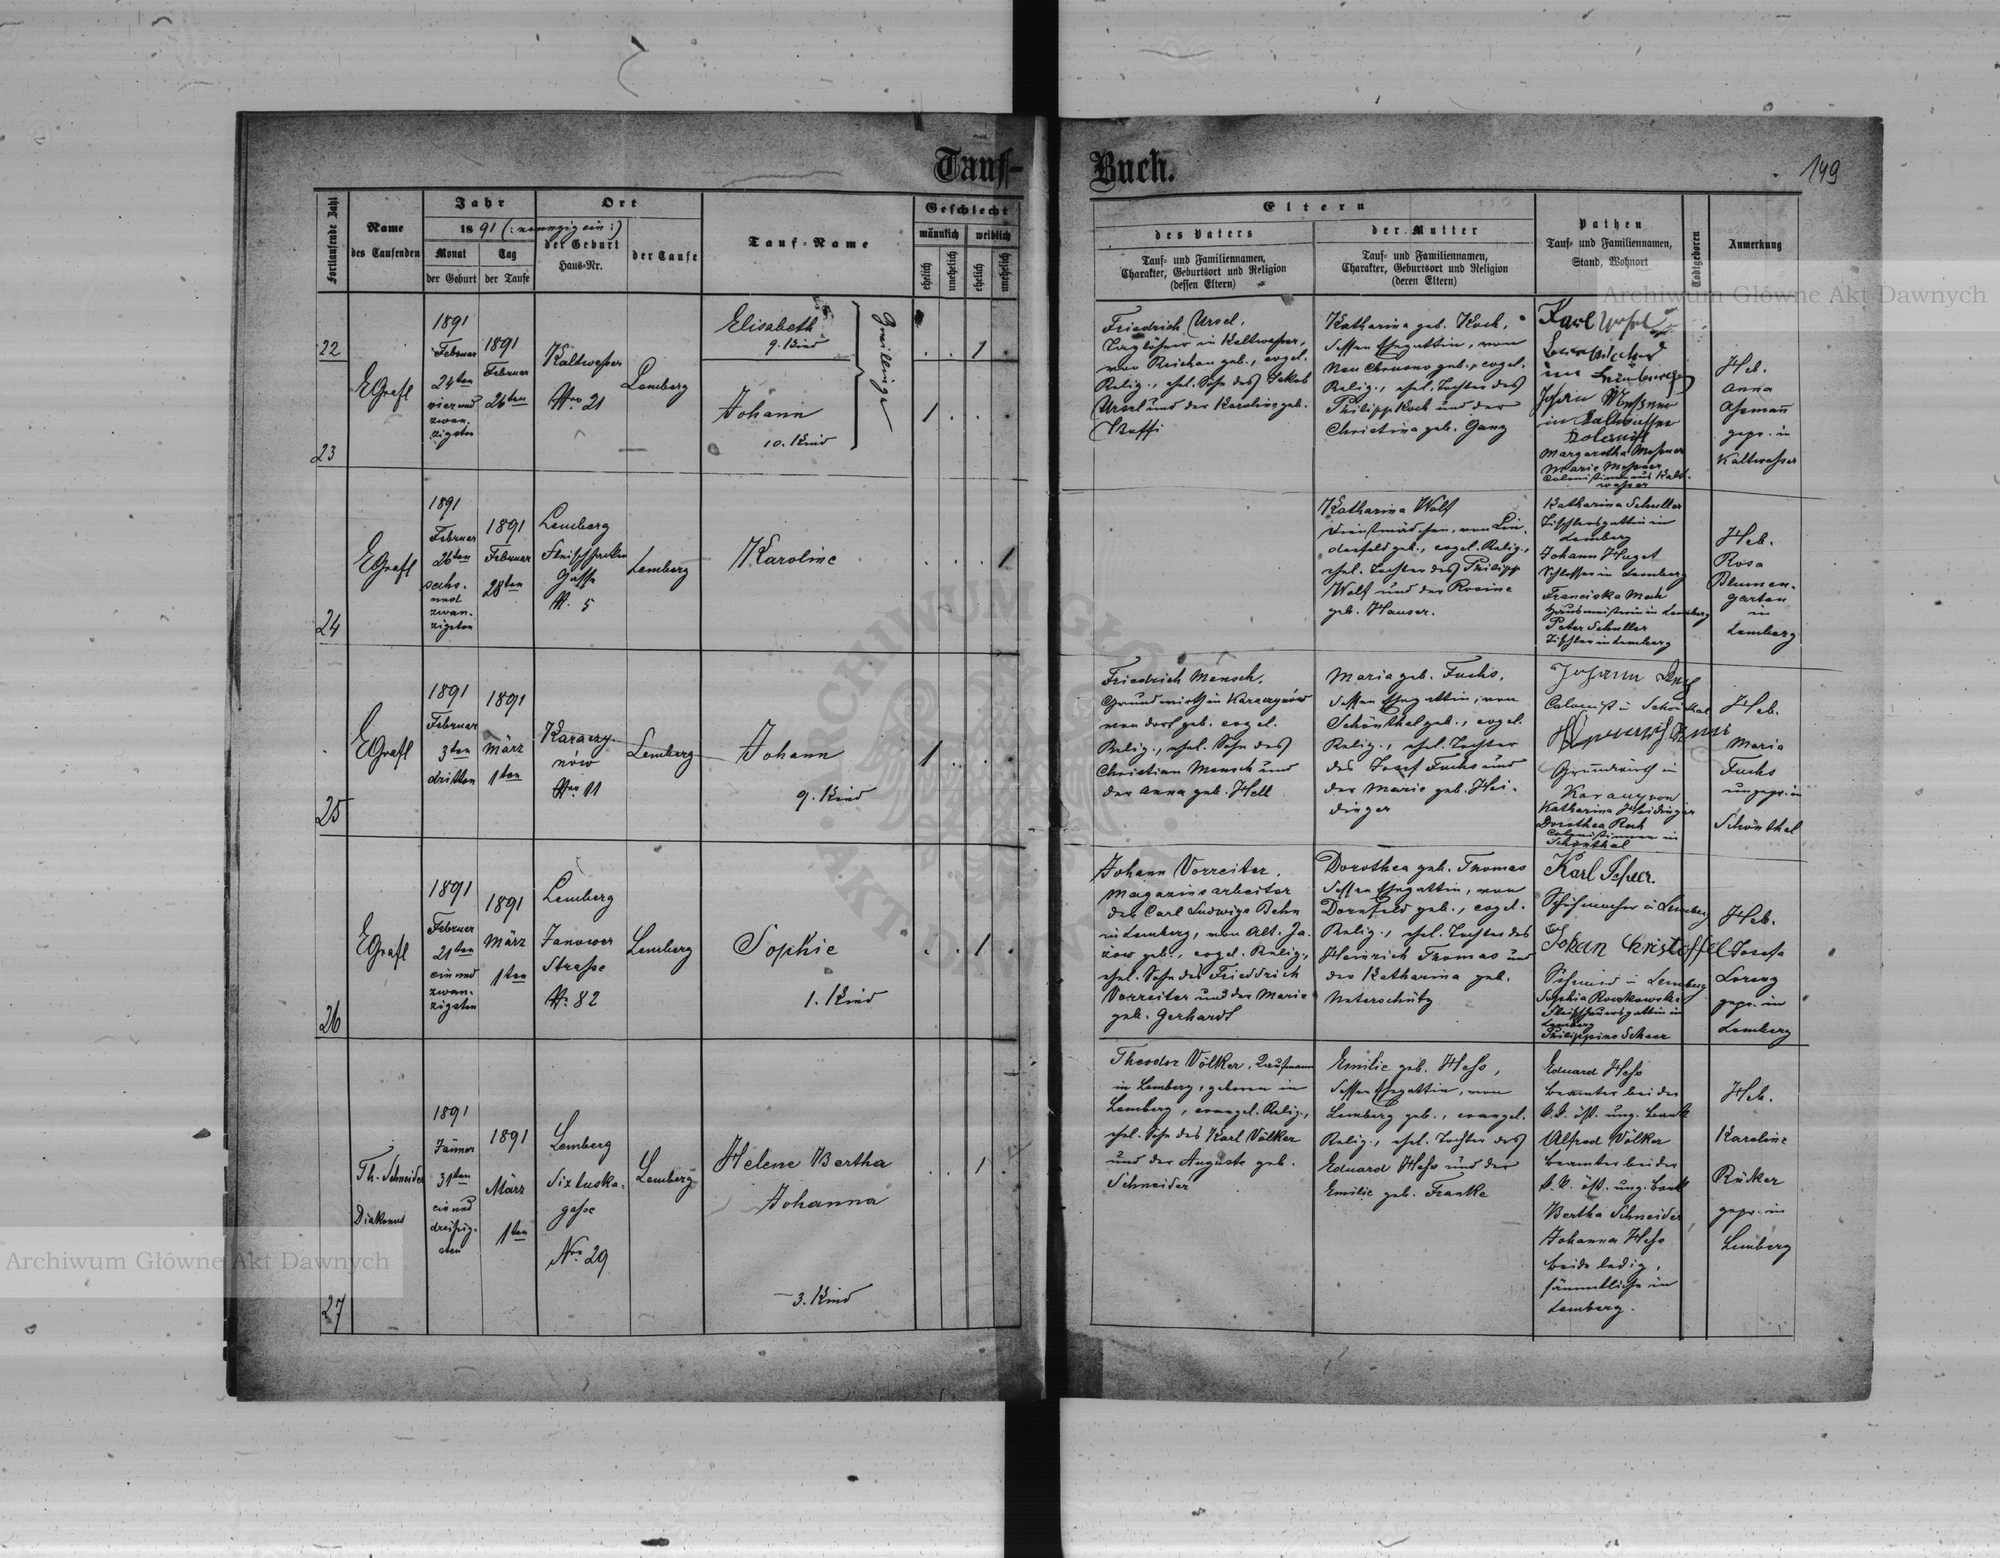 Tauf-
Buch.
149
Fortlaufende Zahl
Name
des Taufenden
Jahr
1891 (: neunzig ein :)
Monat
der Geburt
Tag
der Taufe
Ort
der Geburt
Haus-Nr.
der Taufe
Tauf-Name
Geschlecht
männlich
weiblich
ehelich
unehelich
ehelich
unehelich
Eltern
des Vaters
Tauf- und Familiennamen,
Charakter, Geburtsort und Religion
(dessen Eltern)
der Mutter
Tauf- und Familiennamen,
Charakter, Geburtsort und Religion
(deren Eltern)
Pathen
Tauf- und Familiennamen,
Stand, Wohnort
Todtgeboren
Anmerkung
Archiwum Główne Akt Dawnych
22
23
EGrafl
1891
Februar
24ten
vier und
zwan-
zigsten
1891
Februar
26ten
Kaltwasser
Nro 21
Lemberg
Elisabeth
9. Kind
Johann
10. Kind
Zwillinge
1
1
Friedrich Ursel,
Taglöhner in Kaltwasser,
von Reichau geb., evgel.
Relig., ehel. Sohn des Jakob
Ursel und der Karoline geb.
Katharina geb. Koch,
dessen Ehegattin, von
Neu Chrusno geb., evgel.
Relig., ehel. Tochter des
Philipp Koch und der
Christina geb. Ganz
Karl Ursel
in
Johann
in Kaltwasser
Margaretha Messner
Marie Messner
Colonistinnen aus Kalt-
wasser
Heb.
Anna
Assmann
gepr. in
Kaltwasser
24
EGrafl
1891
Februar
26ten
sechs-
und
zwan-
zigsten
1891
Februar
28ten
Lemberg
Fleischhacker
Gasse
N. 5
Lemberg
Karoline
1
Katharina Wolf
Dienstmädchen, von Lin-
denfeld geb., evgel. Relig.,
ehel. Tochter des Philipp
Wolf und der Rosine
geb. Hauser.
Katharina Schuller
Tischlersgattin in
Lemberg
Johann Huget
Schlosser in Lemberg
Franciska Mach
Hausmeisterin in Lemberg
Peter Schuller
Tischler in Lemberg
Heb.
Rosa
Blumen-
garten
in
Lemberg
25
EGrafl
1891
Februar
3ten
dritten
1891
März
1ten
Karaczy-
nów
Nro 11
Lemberg
Johann
9. Kind
1
Friedrich Mensch,
Grundwirth in Karaczynów
von dort geb. evgel.
Relig., ehel. Sohn des
Christian Mensch und
der Anna geb. Hell
Maria geb. Fuchs,
dessen Ehegattin, von
Schönthal geb., evgel.
Relig., ehel. Tochter
des Josef Fuchs und
der Marie geb. Hei-
dinger
Johann
Colonist in Schönthal
Grundwirth in
Katharina Heidinger
Dorothea Roch
Colonistinnen in
Schönthal
Heb.
Maria
Fuchs
ungepr. in
Schönthal
26
EGrafl
1891
Februar
21ten
ein und
zwan-
zigsten
1891
März
1ten
Lemberg
Janower
Strasse
N. 82
Lemberg
Sophie
1. Kind
1
Johann Vorreiter,
Magazinsarbeiter
der Carl Ludwigs Bahn
in Lemberg, von Alt-Ja-
zow geb., evgel. Relig.,
ehel. Sohn des Friedrich
Vorreiter und der Marie
geb. Gerhardt
Dorothea geb. Thomas
dessen Ehegattin, von
Dornfeld geb., evgel.
Relig., ehel. Tochter des
Heinrich Thomas und
der Katharina geb.
Unterschütz
Karl Scheer.
Schuhmacher in Lemberg
Johan Christoffel
Schmied in Lemberg
Sophia
Fleischhauersgattin in
Lemberg
Philippine Scheer
Heb.
Josefa
Lorenz
gepr. in
Lemberg
27
Th. Schneider
Diakonus
1891
Jänner
31ten
ein und
dreissig-
sten
1891
März
1ten
Lemberg
Sixtuska-
gasse
Nro 29
Lemberg
Helene Bertha
Johanna
3. Kind
1
Theodor Völker, Kaufmann
in Lemberg, geboren in
Lemberg, evangel. Relig.,
ehel. Sohn des Karl Völker
und der Auguste geb.
Schneider
Emilie geb. Hess,
dessen Ehegattin, von
Lemberg geb., evangel.
Relig., ehel. Tochter des
Eduard Hess und der
Emilie geb. Franke
Eduard Hess
Beamter bei der
k. k. öst. ung. Bank
Alfred Völker
Beamter bei der
k. k. öst. ung. Bank
Bertha Schneider,
Johanna Hess
beide ledig,
sämmtliche in
Lemberg.
Heb.
Karoline
Rücker
gepr. in
Lemberg
Archiwum Główne Akt Dawnych
ARCHIWUM GŁÓWNE AKT DAWNYCH